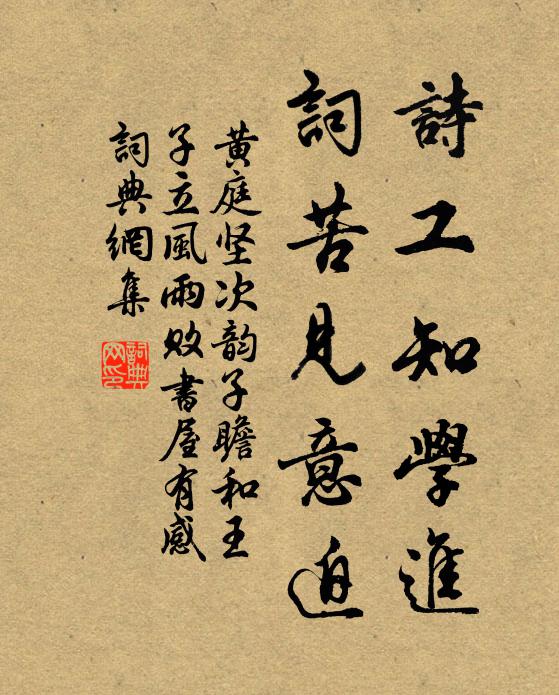 詩工知學進
詞苦見意迫
黃庭坚次韵子瞻和王
子立風雨敗書屋有感
詞典網集
詞典
网印